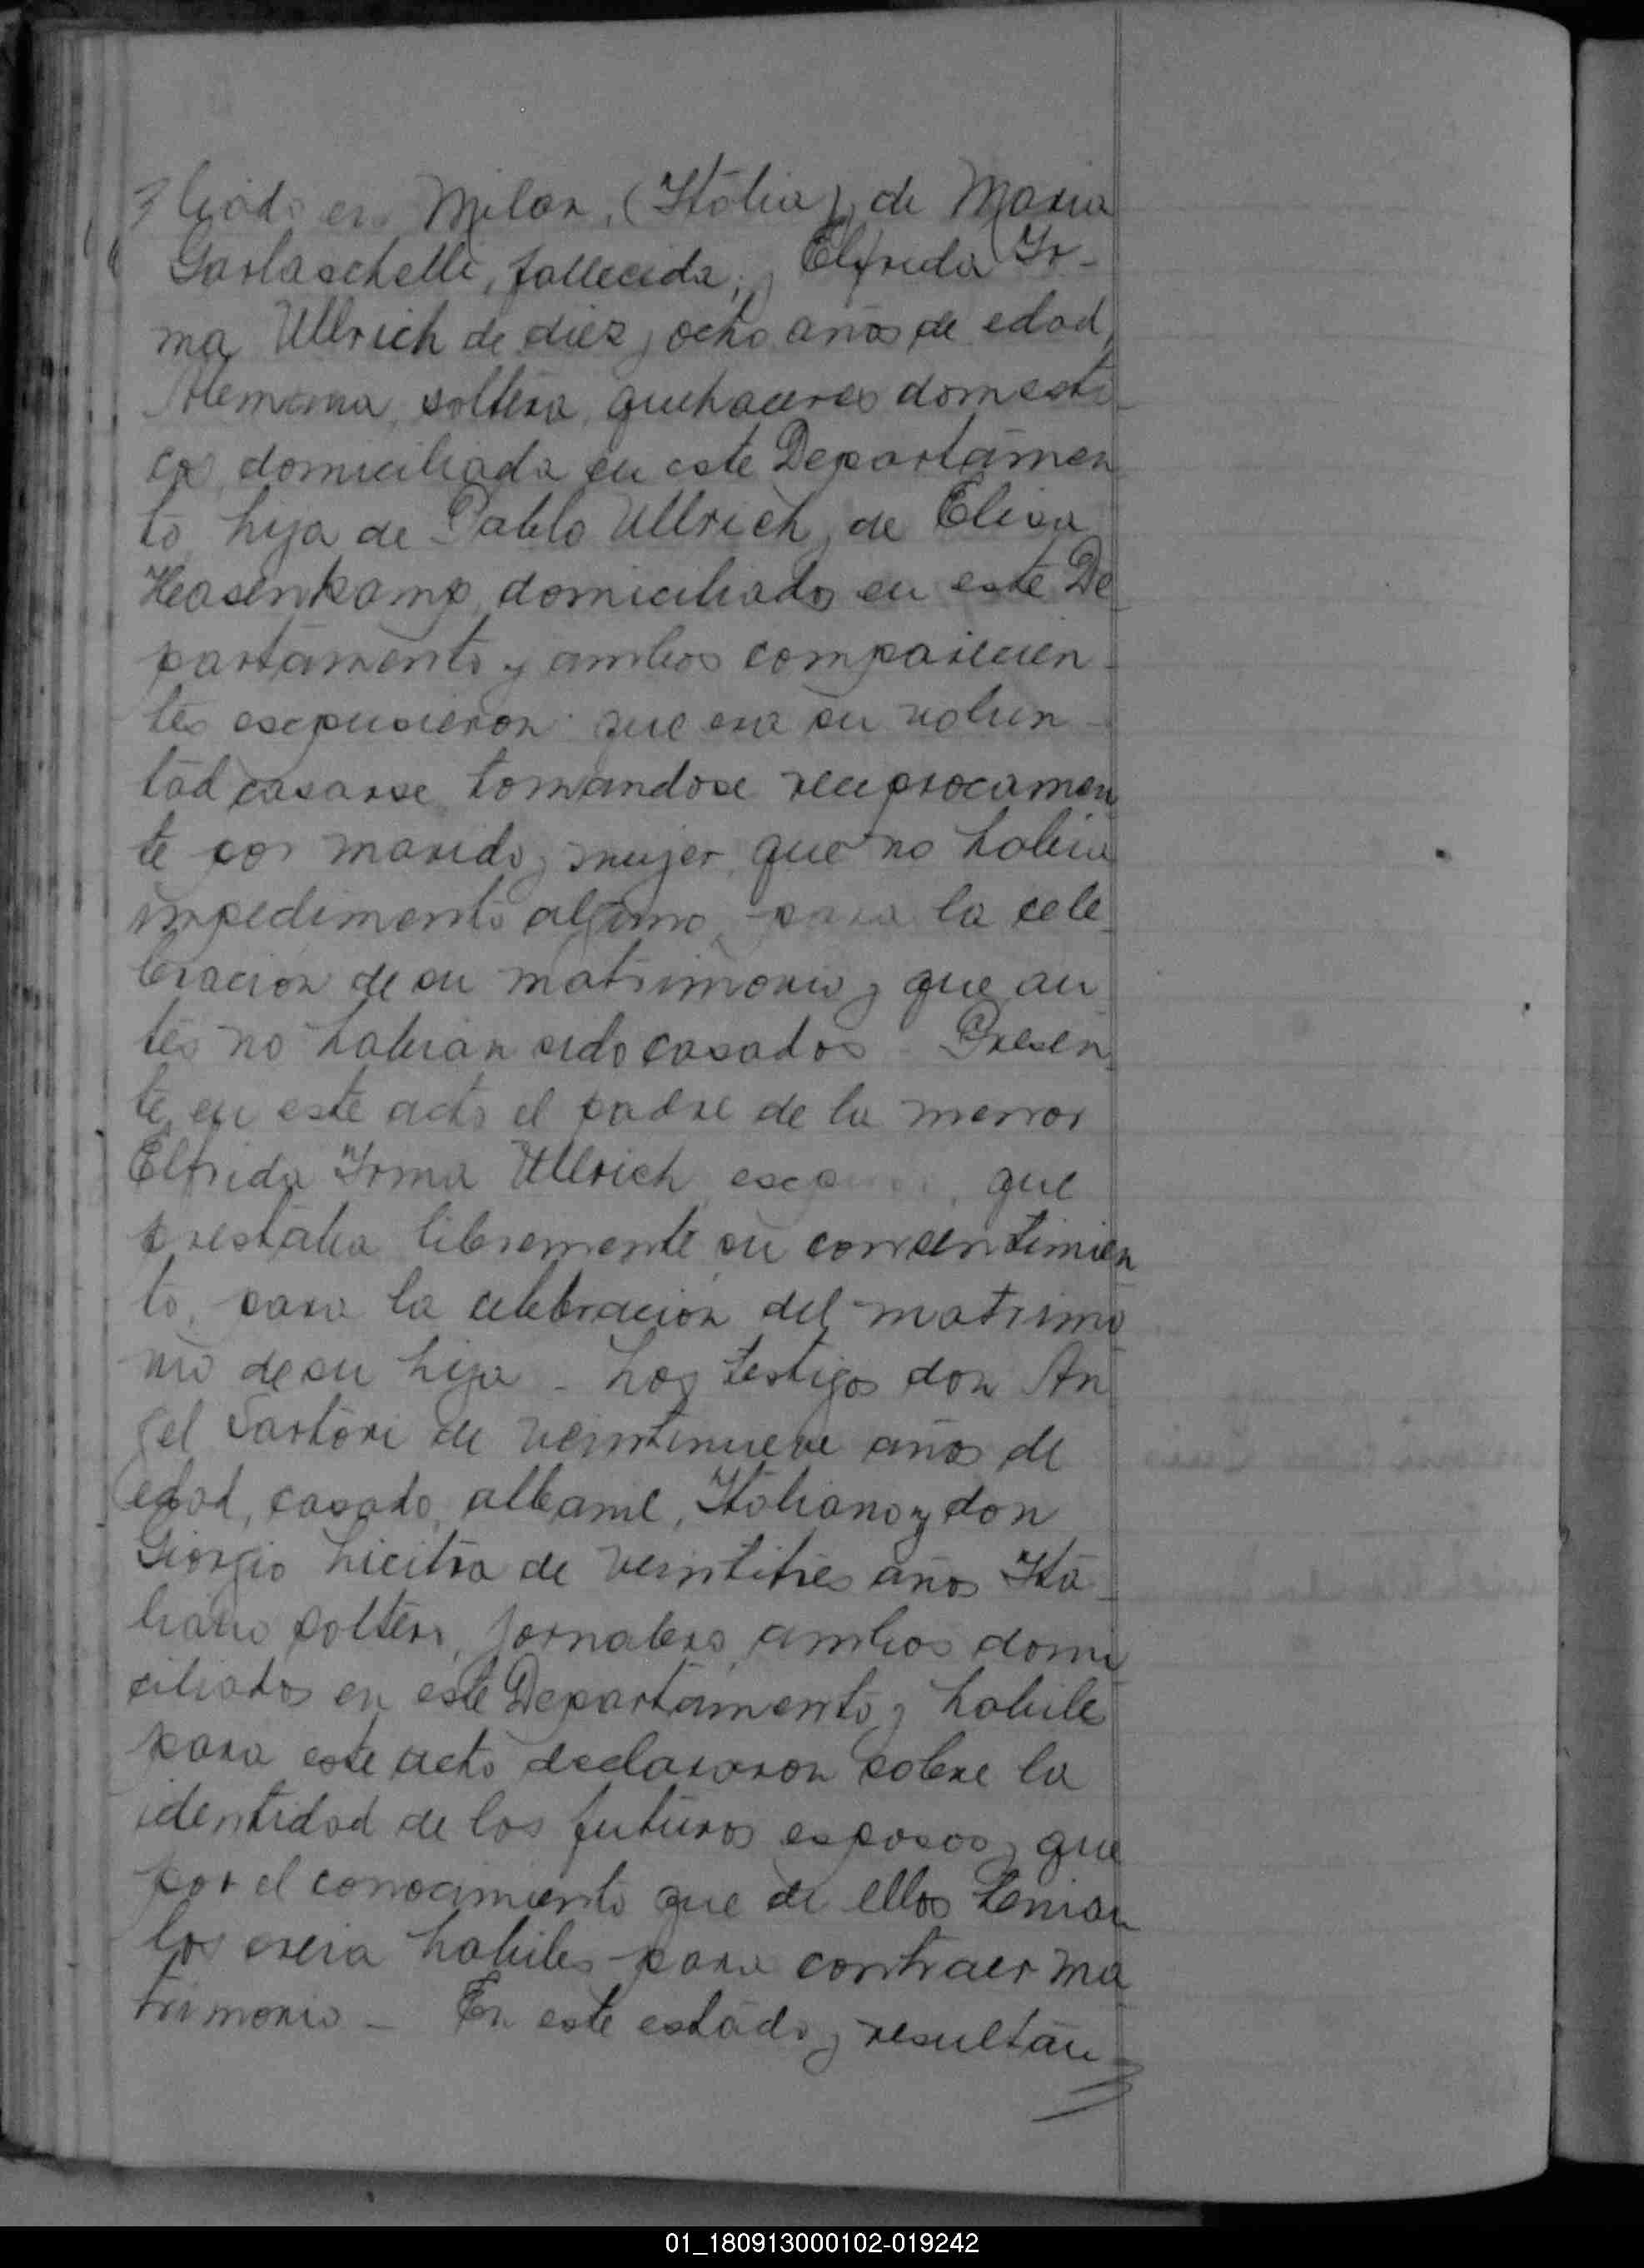 liado en Milan, (Italia) y de Maria
Garlaschelli, fallecida; y Elfrida Ir-
ma Ullrich de diez y ocho años de edad,
Alemana, soltera, quehaceres domesti-
cos, domiciliada en este Departamen
to, hija de Pablo Ullrich y de Elisa
Heasenkamp, domiciliados en este De
partamento y ambos comparecien-
tes esepusieron: que era su volun-
tad casarse tomandose reciprocamen
te por marido y mujer, que no habia
impedimento alguno para la cele-
bracion de su matrimonio y que an
tes no habian sido casados - Presen
te en este acto el padre de la menor
Elfrida Irma Ullrich, que
prestaba libremente su consentimien
to, para la celebracion del matrimo
nio de su hija - Los testigos don An
gel Sartori de veintinueve años de
edad, casado, albanil, Italiano y don
Giorgio Licitra de veintitres años Ita-
liano soltero, jornalero, ambos domi
ciliados en este Departamento y habile
para este acto declararon sobre la
identidad de los futuros esposos y que
por el conocimiento que de ellos tenian
los creia habiles para contraer ma
trimonio - En este estado y resultan
01_180913000102-019242